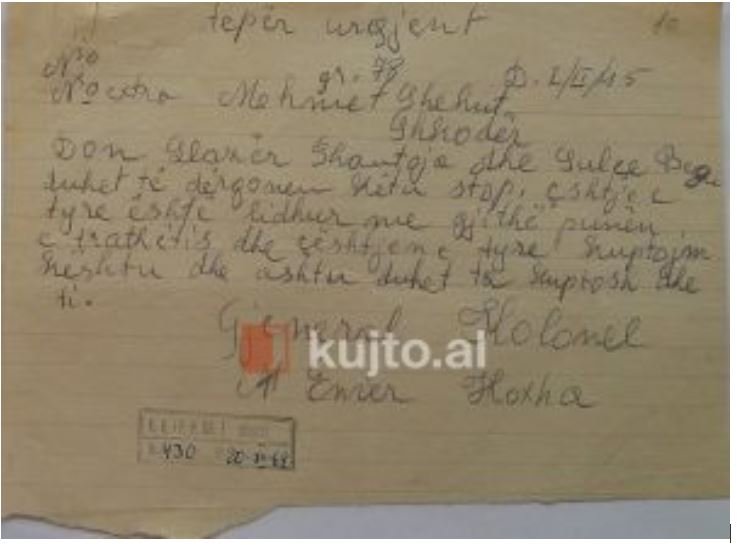 tepër urgjent
10
Nr 0
gr. 78
D. 2/II/45
Nr 0 extra Mehmet Shehut
Shkodër
Don Lazër Shantoja dhe Sulçe Begu
duhet të dërgonen këtu stop. çështje e
tyre është lidhur me gjithë punën
e trathëtis dhe çështjen e tyre kuptojm
kështu dhe ashtu duhet ta kuptosh dhe
ti.
Gjeneral Kolonel
kujto.al
Enver Hoxha
430